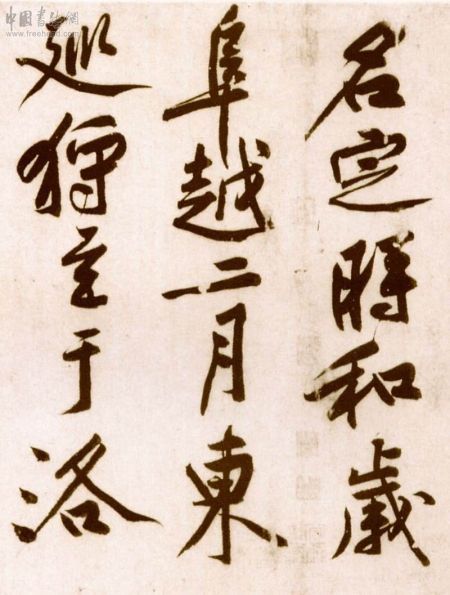 名定時和歲
阜越二月東
巡狩至于洛
中国书法網
www.freehead.com